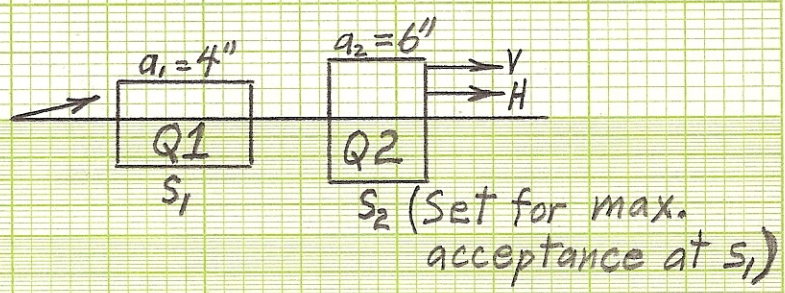 a₁ = 4"
a₂ = 6"
V
H
Q1
Q2
S₁
S₂ (Set for max.
acceptance at S₁)